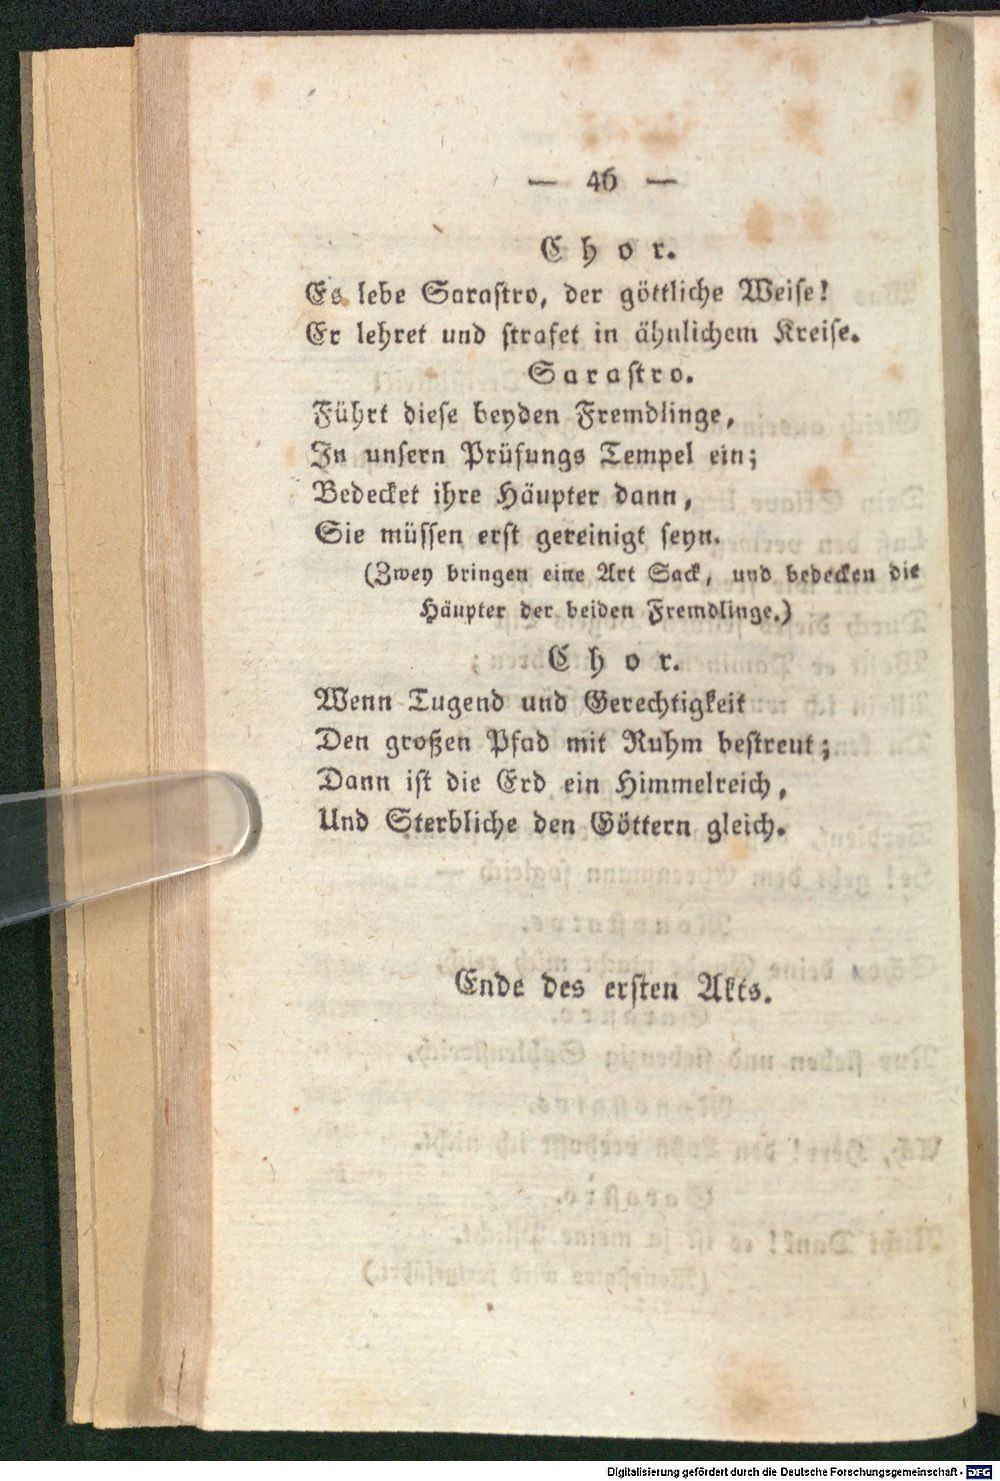 — 46 —
Chor.
Es lebe Sarastro, der göttliche Weise!
Er lehret und strafet in ähnlichem Kreise.
Sarastro.
Führt diese beyden Fremdlinge,
In unsern Prüfungs Tempel ein;
Bedecket ihre Häupter dann,
Sie müssen erst gereinigt seyn.
(Zwey bringen eine Art Sack, und bedecken die
Häupter der beiden Fremdlinge.)
Chor.
Wenn Tugend und Gerechtigkeit
Den großen Pfad mit Ruhm bestreut;
Dann ist die Erd ein Himmelreich,
Und Sterbliche den Göttern gleich.
Ende des ersten Akts.
Digitalisierung gefördert durch die Deutsche Forschungsgemeinschaft - DFG